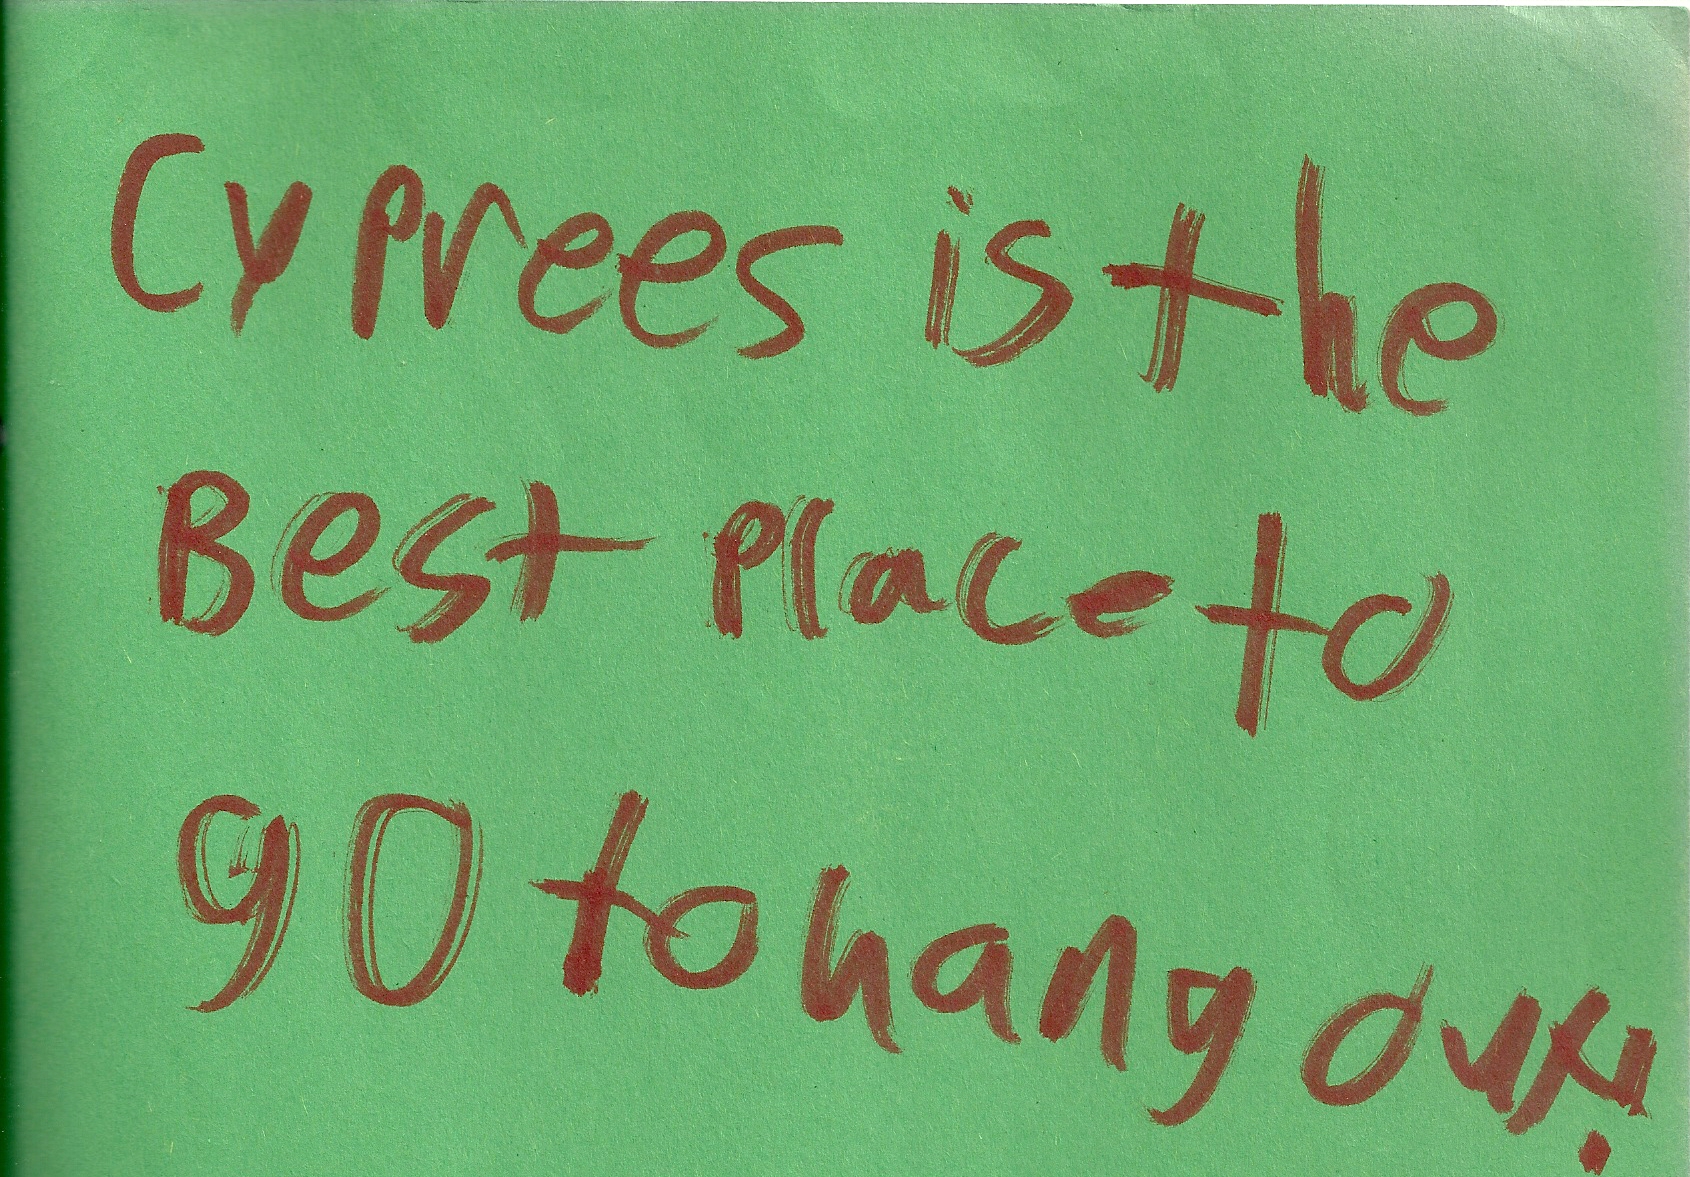 Cyprees is the
Best Place to
go to hang out!